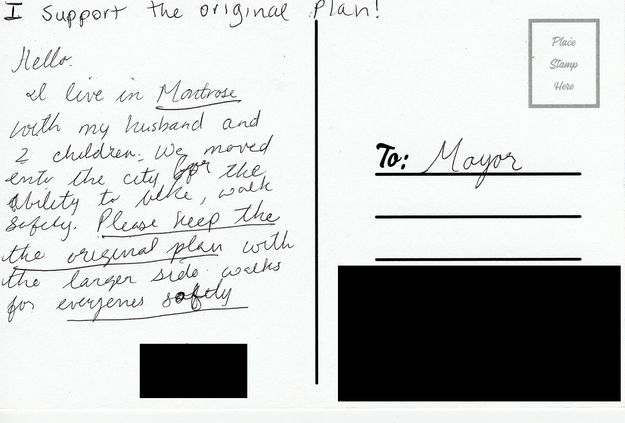 I support the original plan!
Hello.
I live in Montrose
with my husband and
2 children. We moved
ento the city for the
ability to bike, walk
safely. Please keep the
the original plan with
the larger side walks
for everyenes safety
Place
Stamp
Here
To: Mayor